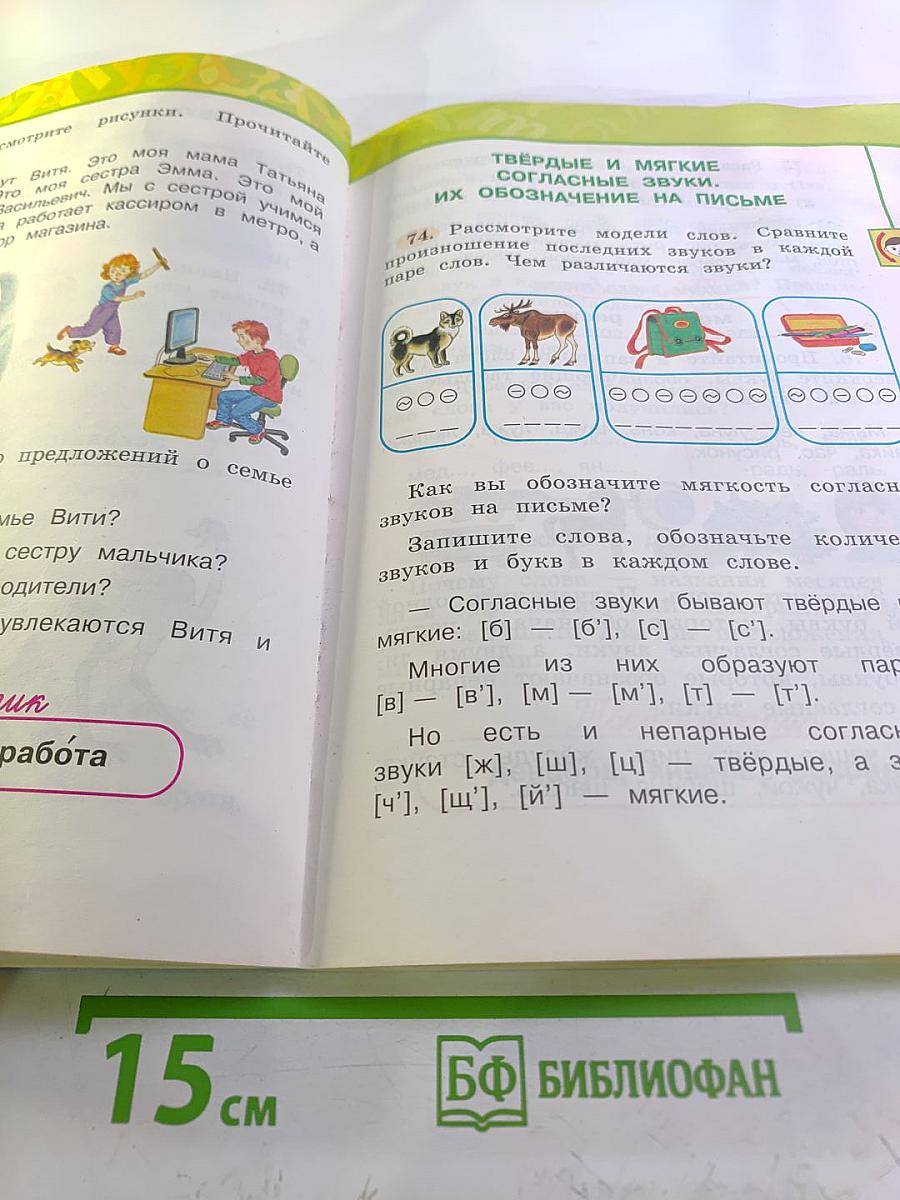 смотрите рисунки. Прочитайте
ут Витя. Это моя мама Татьяна
Это моя сестра Эмма. Это мой
Васильевич. Мы с сестрой учимся
а работает кассиром в метро, а
ор магазина.
о предложений о семье
мье Вити?
сестру мальчика?
одители?
увлекаются Витя и
ик
рабо́та
ТВЁРДЫЕ И МЯГКИЕ
СОГЛАСНЫЕ ЗВУКИ.
ИХ ОБОЗНАЧЕНИЕ НА ПИСЬМЕ
74. Рассмотрите модели слов. Сравните
произношение последних звуков в каждой
паре слов. Чем различаются звуки?
Как вы обозначите мягкость согласн
звуков на письме?
Запишите слова, обозначьте количе
звуков и букв в каждом слове.
— Согласные звуки бывают твёрдые
мягкие: [б] — [б’], [с] — [с’].
Многие из них образуют пар
[в] — [в’], [м] — [м’], [т] — [т’].
Но есть и непарные согласн
звуки [ж], [ш], [ц] — твёрдые, а з
[ч’], [щ’], [й’] — мягкие.
15 см
БФ БИБЛИОФАН